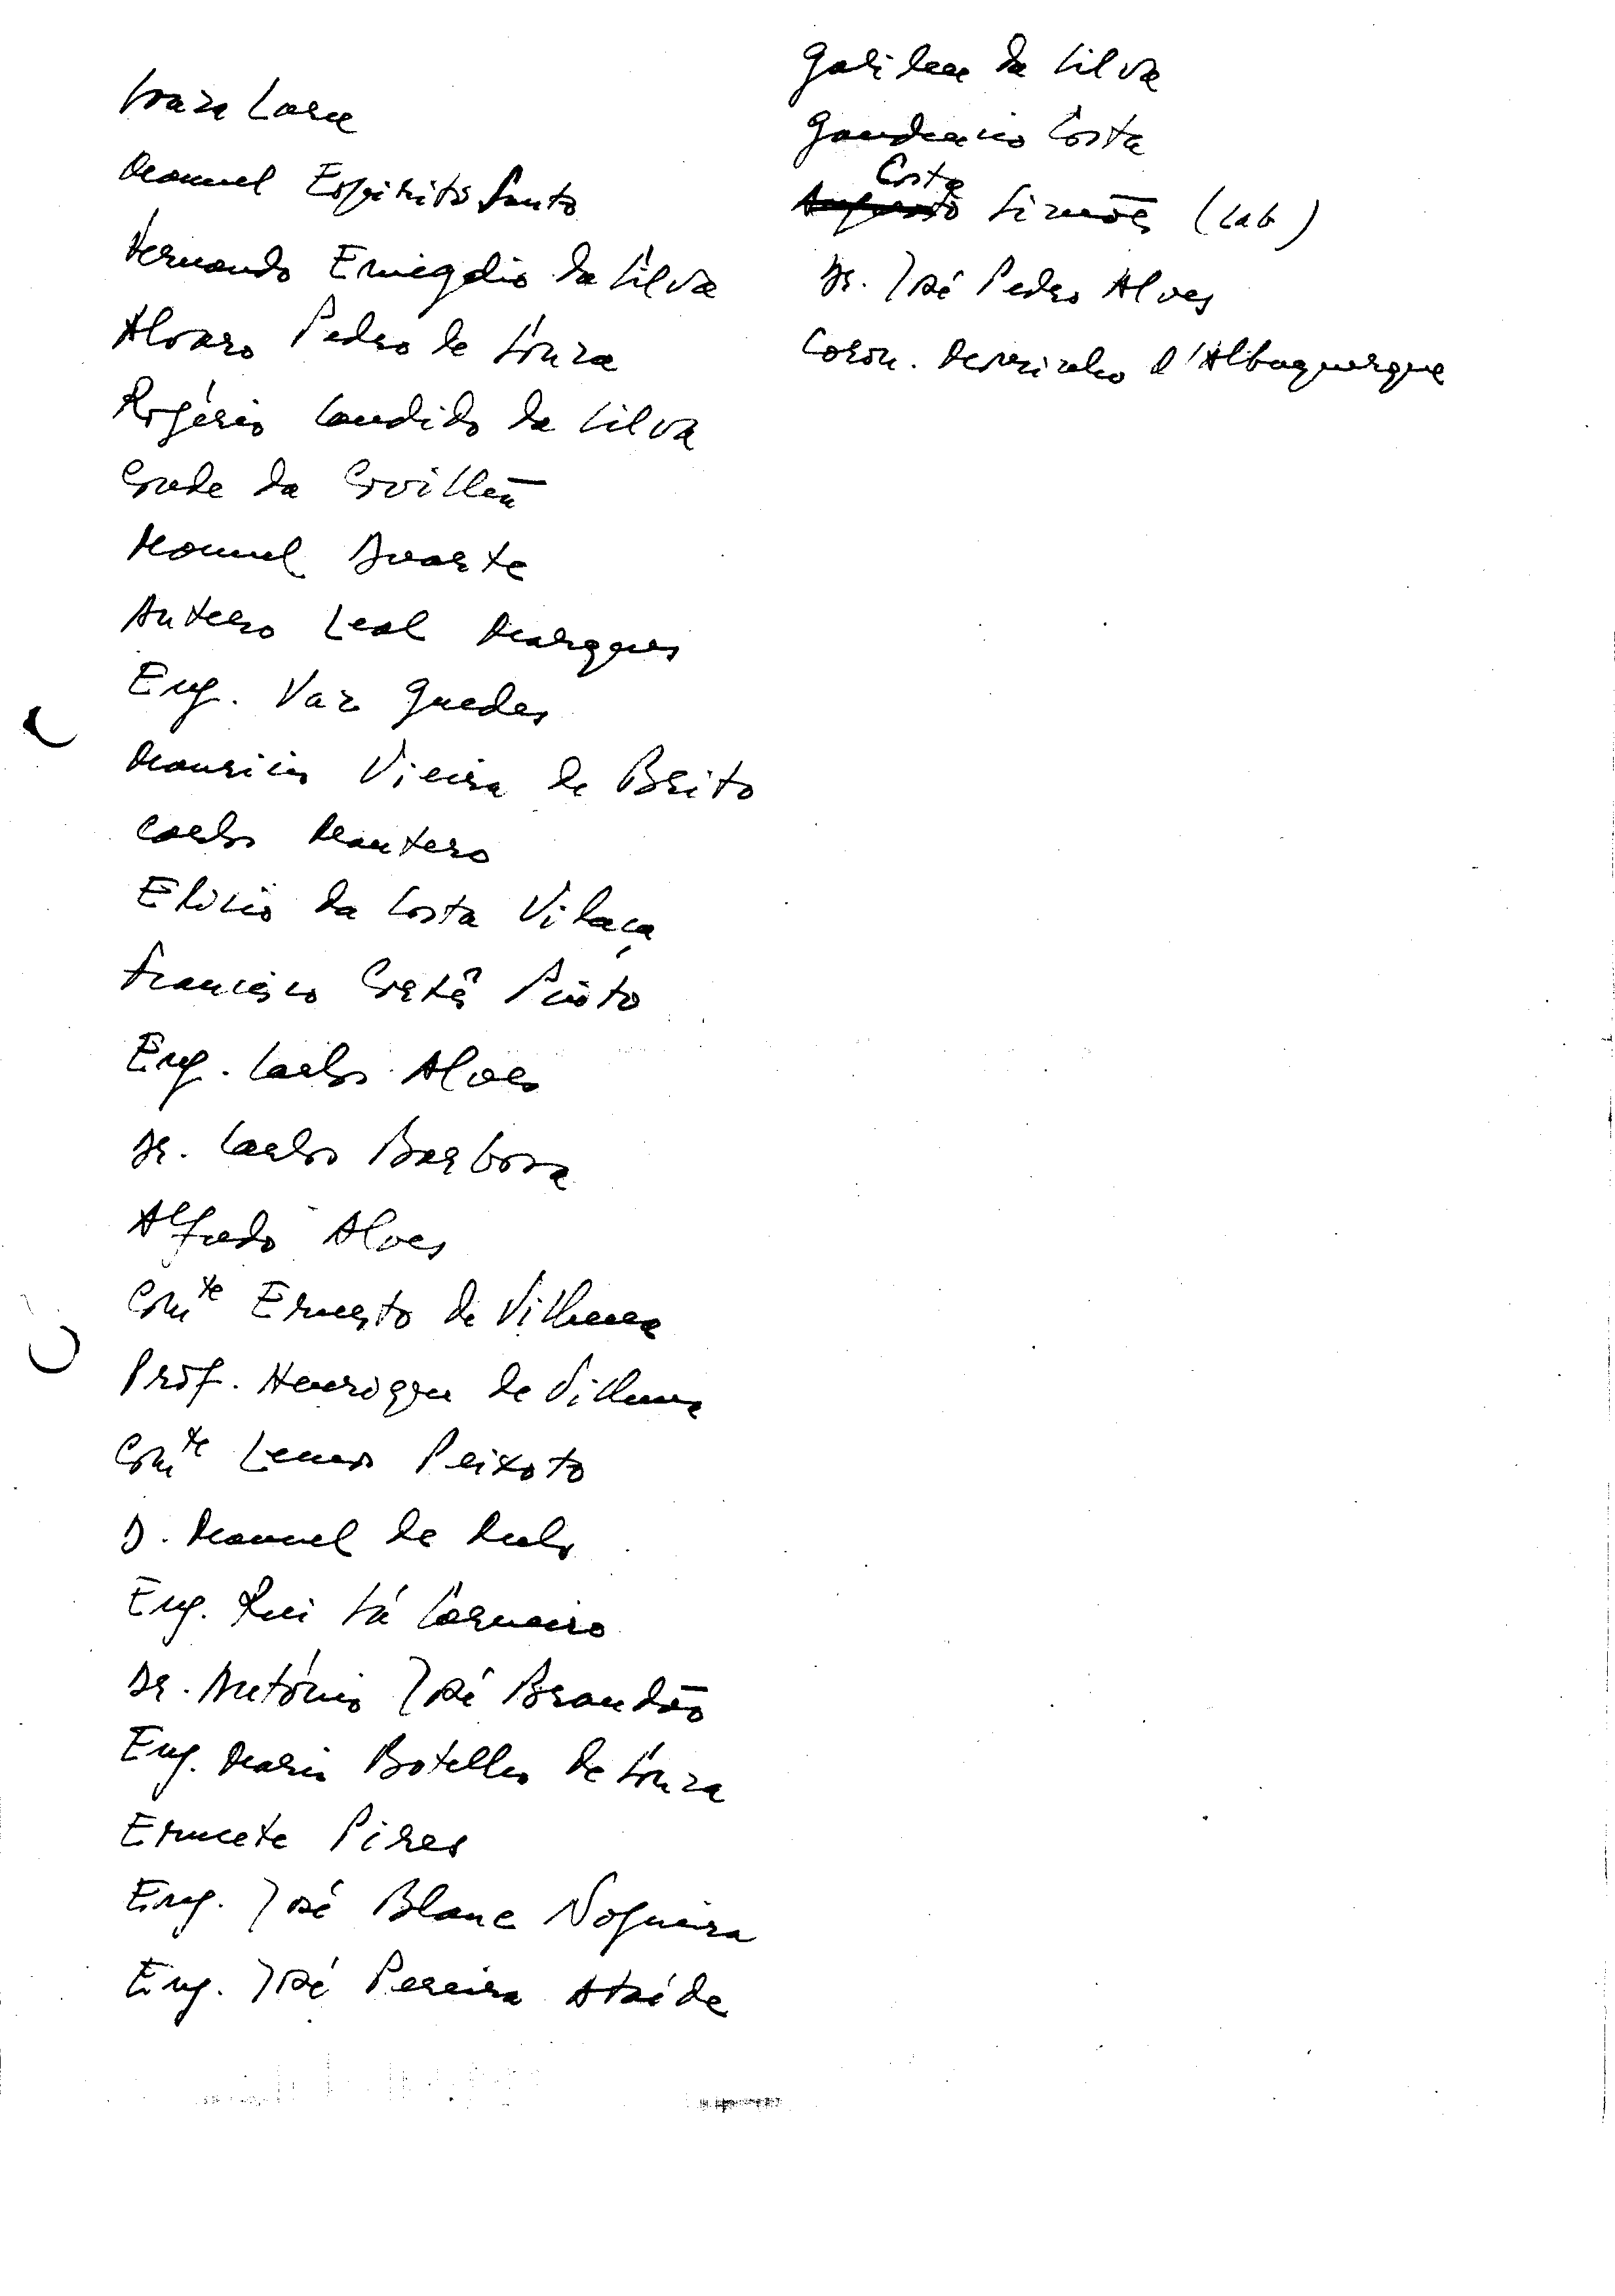 Souza Lara
Manuel Espirito Santo
Fernando Emigdio da Silva
Alvaro Pedro de Souza
Rogério Candido da Silva
Conde da Covilhã
Manuel Duarte
Antero Leal Marques
Eng. Vaz Guedes
Mauricio Vieira de Brito
Carlos Mantero
Elisio da Costa Vilaça
Francisco Cortês Pinto
Eng. Carlos Alves
Dr. Carlos Barbosa
Alfredo Alves
Com.te Ernesto de Vilhena
Prof. Henrique de Vilhena
Com.te Lemos Peixoto
D. Manuel de Melo
Eng. Rui Sá Carneiro
Dr. António José Brandão
Eng. Mario Botelho de Souza
Ermete Pires
Eng. José Blanc Nogueira
Eng. José Pereira Ataíde
Galileu da Silva
Gaudencio Costa
Costa
Augusto Simões (Cab)
Dr. José Pedro Alves
Coron. Mousinho d'Albuquerque